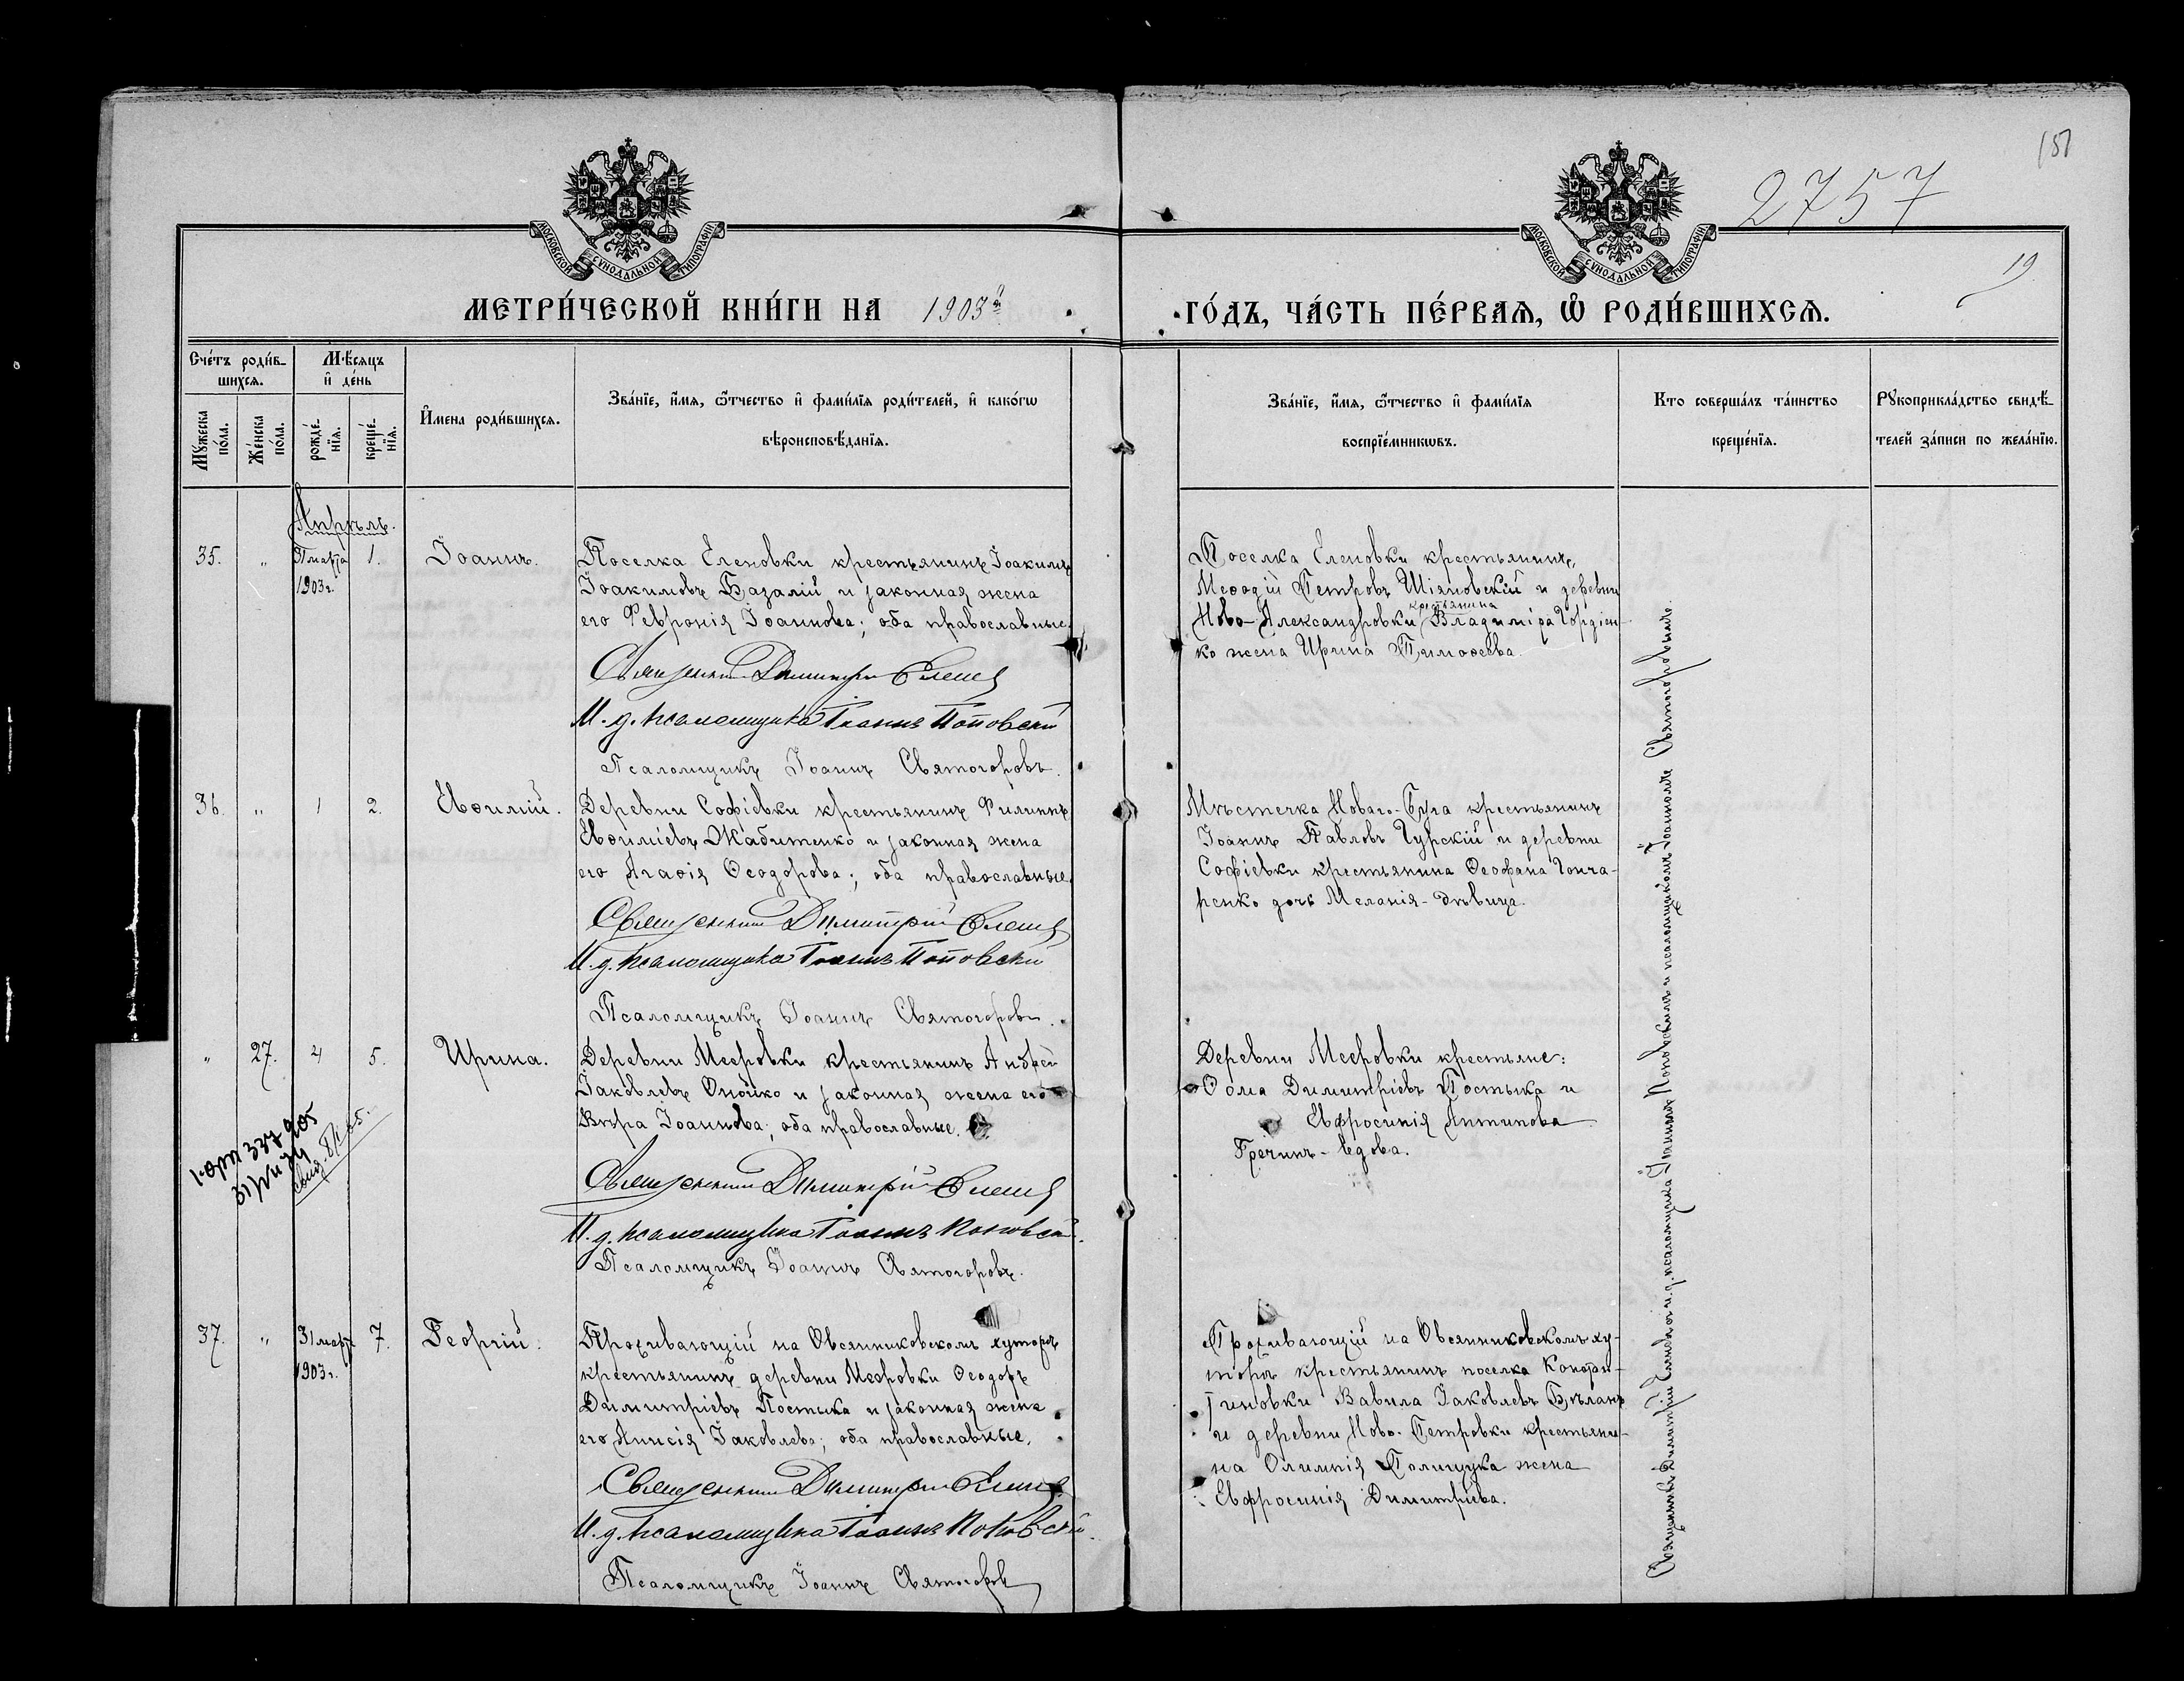 151
2757
19
МОСКОВСКОЙ СѴНОДАЛЬНОЙ ТИПОГРАФІИ
МОСКОВСКОЙ СѴНОДАЛЬНОЙ ТИПОГРАФІИ
МЕТРИ́ЧЕСКОЙ КНИ́ГИ НА 1903й
ГО́ДЪ, ЧА́СТЬ ПЕ́РВАѦ, Ѽ РОДИ́ВШИХСѦ.
Сче́тъ роди́в-
шихсѧ.
Мꙋ́жеска по́ла.
Же́нска по́ла.
Мѣ́сѧцъ
и҆ де́нь
рожде́-
нїѧ.
креще́-
нїѧ.
И҆мена роди́вшихсѧ.
Зва́нїе, и҆́мѧ, ѻ҆́тчество и҆ фами́лїѧ роди́телей, и҆ како́гѡ
вѣроисповѣ́данїѧ.
Зва́нїе, и҆́мѧ, ѻ҆́тчество и҆ фами́лїѧ
воспрїе́мникѡвъ.
Кто соверша́лъ та́инство
креще́нїѧ.
Рꙋкоприкла́дство свидѣ́-
телей за́писи по жела́нїю.
Апрѣль.
35. " 31 марта 1. Іоаннъ.
1903 г.
Поселка Еленовки крестьянинъ Іоакимъ
Іоакимовъ Базалій и законная жена
его Февронія Іоаннова; оба православные.
Священникъ Димитрій
И. д. псаломщика Іоаннъ Поповскій
Псаломщикъ Іоаннъ Святогоровъ.
Поселка Еленовки крестьянинъ
Меѳодій Петровъ Шіяновскій и деревни
Ново-Александровки крестьянина Владиміра Гордіен-
ко жена Ирина Тимоѳеева.
36. " 1 2. Евѳимій.
Деревни Софіевки крестьянинъ Филиппъ
Евѳиміевъ Жабитенко и законная жена
его Агаѳія Ѳеодорова; оба православные.
Священникъ Димитрій
И. д. псаломщика Іоаннъ Поповскій
Псаломщикъ Іоаннъ Святогоровъ.
Мѣстечка Новаго-Буга крестьянинъ
Іоаннъ Павловъ Гурскій и деревни
Софіевки крестьянина Ѳеофана Гонча-
ренко дочь Меланія-дѣвица.
" 27. 4 5. Ирина.
Деревни Мееровки крестьянинъ Андрей
Іаковлевъ Онойко и законная жена его
Вѣра Іоаннова; оба православные.
Священникъ Димитрій
И. д. псаломщика Іоаннъ Поповскій
Псаломщикъ Іоаннъ Святогоровъ.
Деревни Мееровки крестьяне:
Ѳома Димитріевъ Постыка и
Евфросинія Антипова
Гречинъ-вдова.
37. " 31 март. 7. Георгій.
1903 г.
Проживающій на Овсянниковскомъ хуторѣ
крестьянинъ деревни Мееровки Ѳеодоръ
Димитріевъ Постыка и законная жена
его Анисія Іаковлева; оба православные.
Священникъ Димитрій
И. д. псаломщика Іоаннъ Поповскій.
Псаломщикъ Іоаннъ Святогоровъ
Проживающій на Овсянниковскомъ ху-
торѣ крестьянинъ поселка Констан-
тиновки Вавила Іаковлевъ Бѣланъ
и деревни Ново-Петровки крестьяни-
на Олимпія Полищука жена
Евфросинія Димитріева.
Священникъ Димитрій и и. д. псаломщика Іоаннъ Поповскимъ и псаломщикомъ Іоанномъ Святогоровымъ.